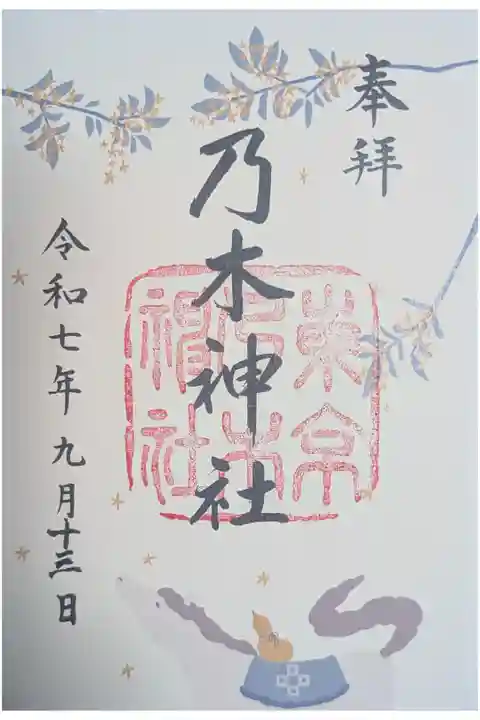 奉拝
乃木神社
東京
乃木
神社
令和七年九月十三日